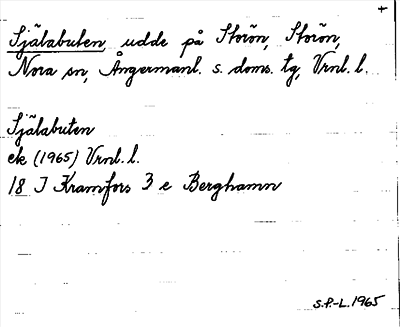 +
Själabuten, udde på Storön, Storön,
Nora sn, Ångermanl. s. doms. tg, Vrnl. l.
Själabuten
ek (1965) Vrnl. l.
18 I Kramfors 3 e Berghamn
S.P.-L. 1965